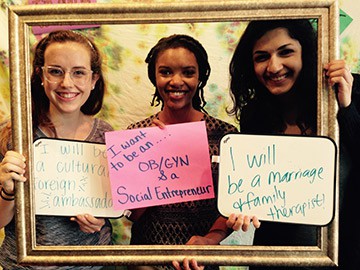 I will be
a cultural
foreign
ambassador
I want to
be an....
OB/GYN
& a
Social Entrepreneur
I will
be a marriage
& family
therapist!